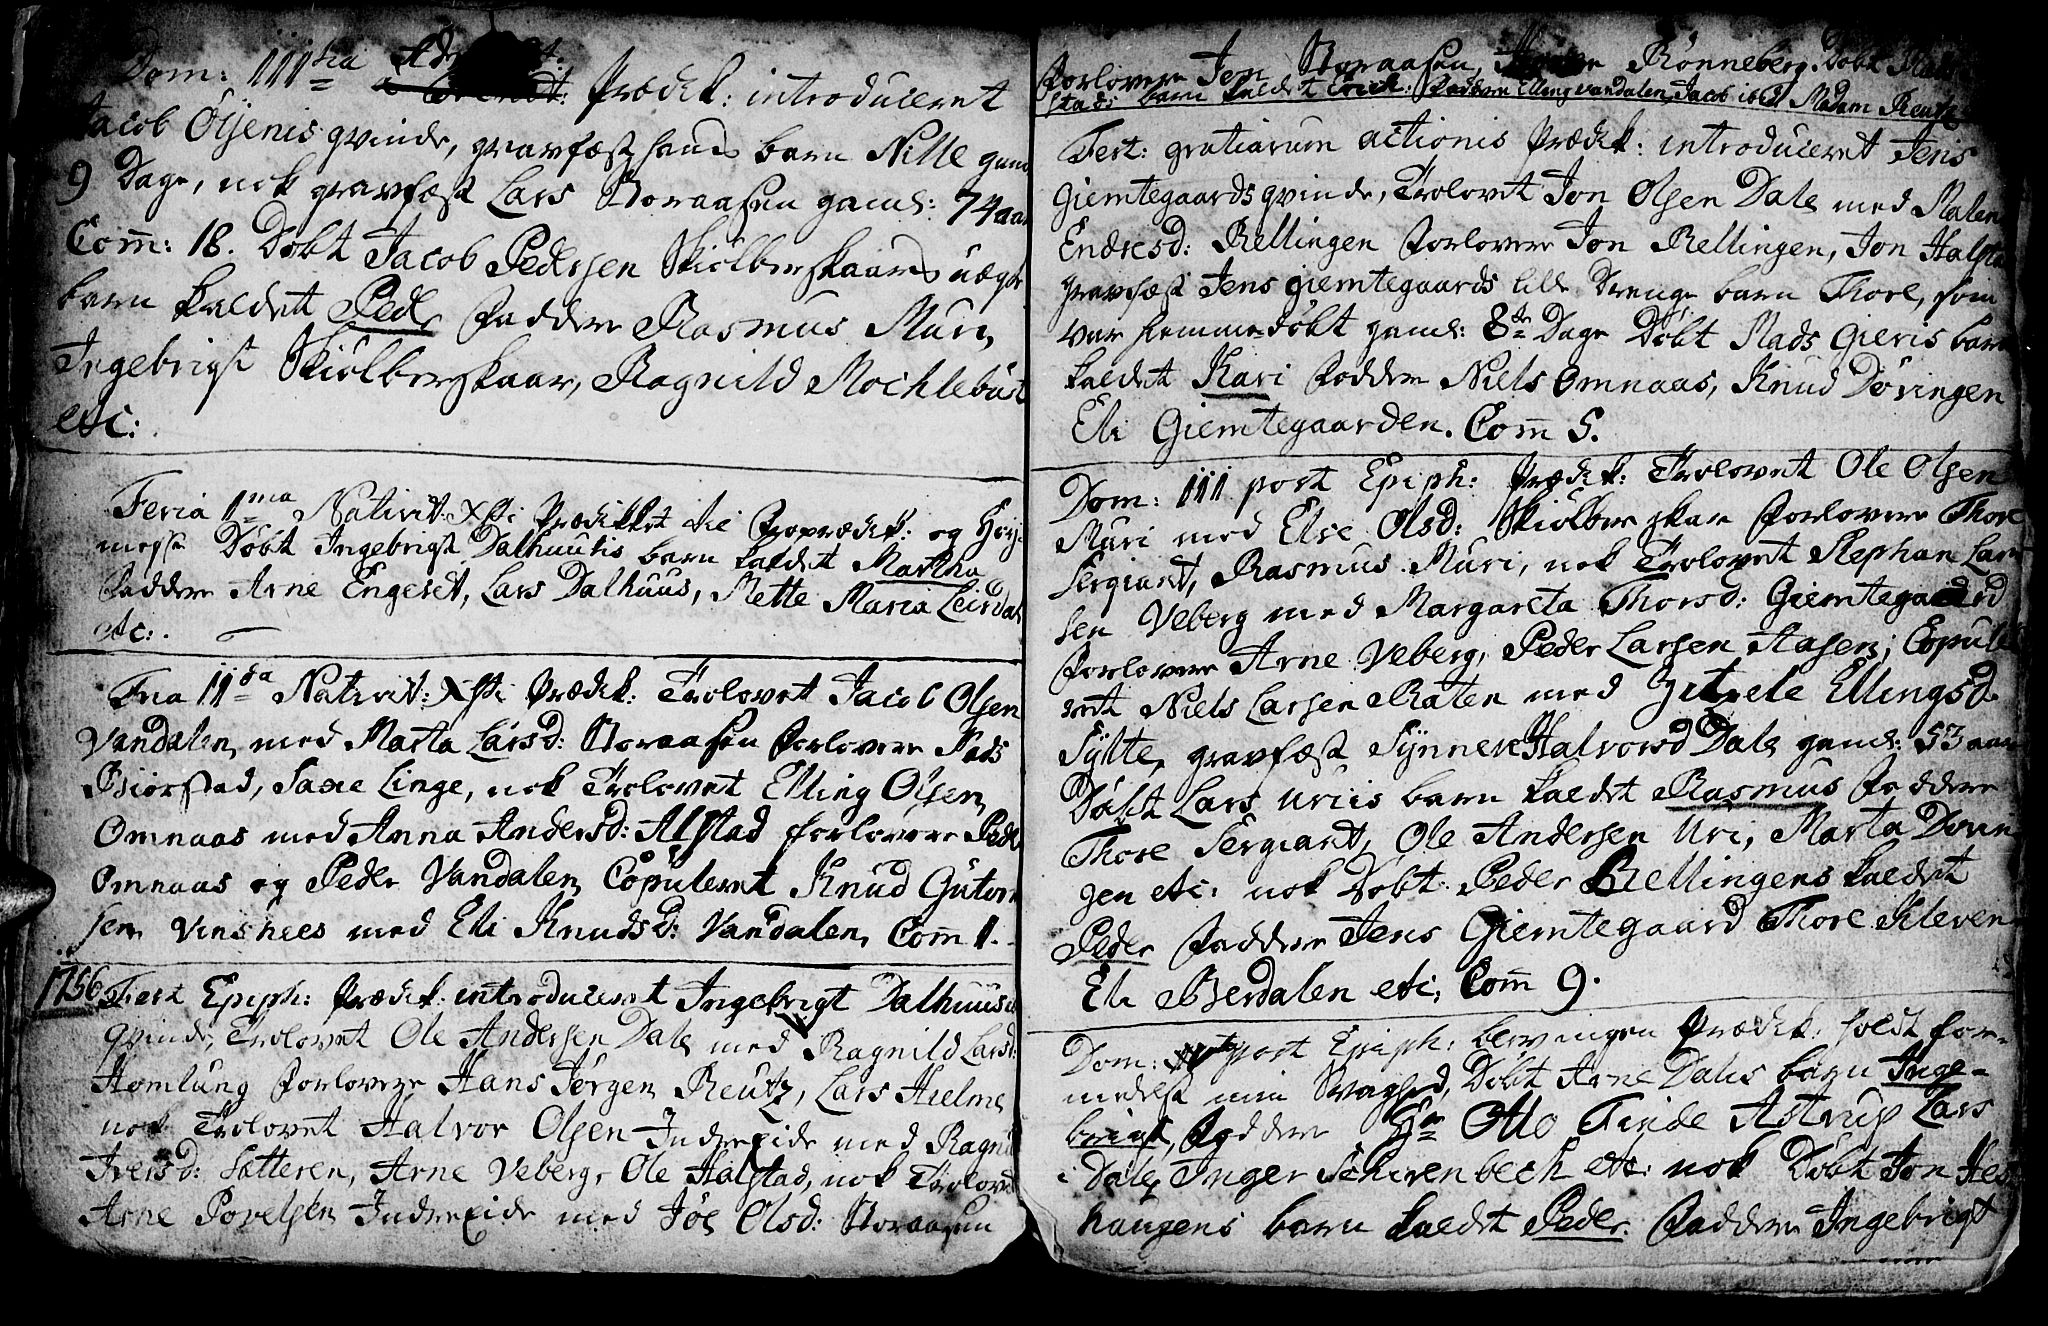 Dom: III tia Adv
Prædik: introduceret
Jacob Olsenis qvinde, gravfæst hans barn Nille gam
9 Dage, nok gravfæst Lars Storaasen gaml: 74 aar
Com̄: 18. Døbt Jacob Pedersen Skiølberskaars uægte
barn kaldet Peder Faddere Rasmus Muri,
Ingebrigt Skiølberskaar, Ragnild Mochlebust
etc:.
Feria 1ma Nativit: Xsti Prædikket til Froprædik: og Høy-
messe Døbt Ingebrigt Dalhuusis barn kaldet Martha
Faddere Arne Engeset, Lars Dalhuus, Mette Maria Leirdal
etc:.
Fria IIda Nativit: Xsti Prædik: Trolovet Jacob Olsen
Vandalen med Marta Larsd: Storaasen Forlovere Mads
Biørstad, Saxe Linge, nok Trolovet Elling Olsen
Omnaas med Anna Andersd: Alstad forlovere Peder
Omnaas og Peder Vandalen, Copuleret Knud Gutorm
sen Vinsnees med Eli Knudsd: Vandalen, Com̄ 1.
1756 Fest Epiph: Prædik: introduceret Ingebrigt Dalhuusis
qvinde, Trolovet Ole Andersen Dale med Ragnild Larsd:
Homlung Forlovere Hans Jørgen Reutz, Lars Hielme
nok Trolovet Halvor Olsen Indreeide med Ragnild
Iversd: Sætteren, Arne Veberg, Ole Halstad, nok Trolovet
Arne Povelsen Indreeide med Joe Olsd: Storaasen
Forlovere Jon Storaasen, Rønneberg. Døbt Mads
stad: barn kaldet Erich: Faddere Elling Vandalen, Jacob ibid Madam Reutz
Fest: gratiarum actionis Prædik: introduceret Jens
Giemtegaards qvinde, Trolovet Jon Olsen Dale med Malene
Endresd: Rellingen Forlovere Jon Rellingen, Jon Halstad
gravfæst Jens Giemtegaards lille Drenge barn Thore, som
var hiemmedøbt gaml: 8te Dage Døbt Mads Gieris barn
kaldet Kari Faddere Niels Omnaas, Knud Døvingen
Eli Giemtegaarden. Com̄ 5.
Dom: III post Epiph: Prædik: Trolovet Ole Olsen
Muri med Else Olsd: Skiølberskar Forlovere Thore
Sergiant, Rasmus Muri, nok Trolovet Stephan Lar
sen Veberg med Margareta Thorsd: Giemtegaard
Forlovere Arne Veberg, Peder Larsen Aasen; Copule
ret Niels Larsen Raten med Ellingsd.
Sylte, gravfæst Synneve Halvorsd Dale gaml: 53 aar
Døbt Lars Uriis barn kaldet Rasmus Faddere
Thore Sergiant, Ole Andersen Uri, Marta Døvin
gen etc: nok Døbt Peder Rellingens kaldet
Peder Faddere Jens Giemtegaard Thore Kleven
Eli Berdalen etc; Com̄ 9.
Dom: post Epiph: Prædik: holdt for-
medelst min Svaghed, Døbt Arne Dales barn Inge-
brigt, Faddere Hr Otto Finde Astrup Lars
i Dale, Inger Schivenbech etc: nok Døbt Jon Hes
haugens barn kaldet Peder. Faddere Ingebrigt